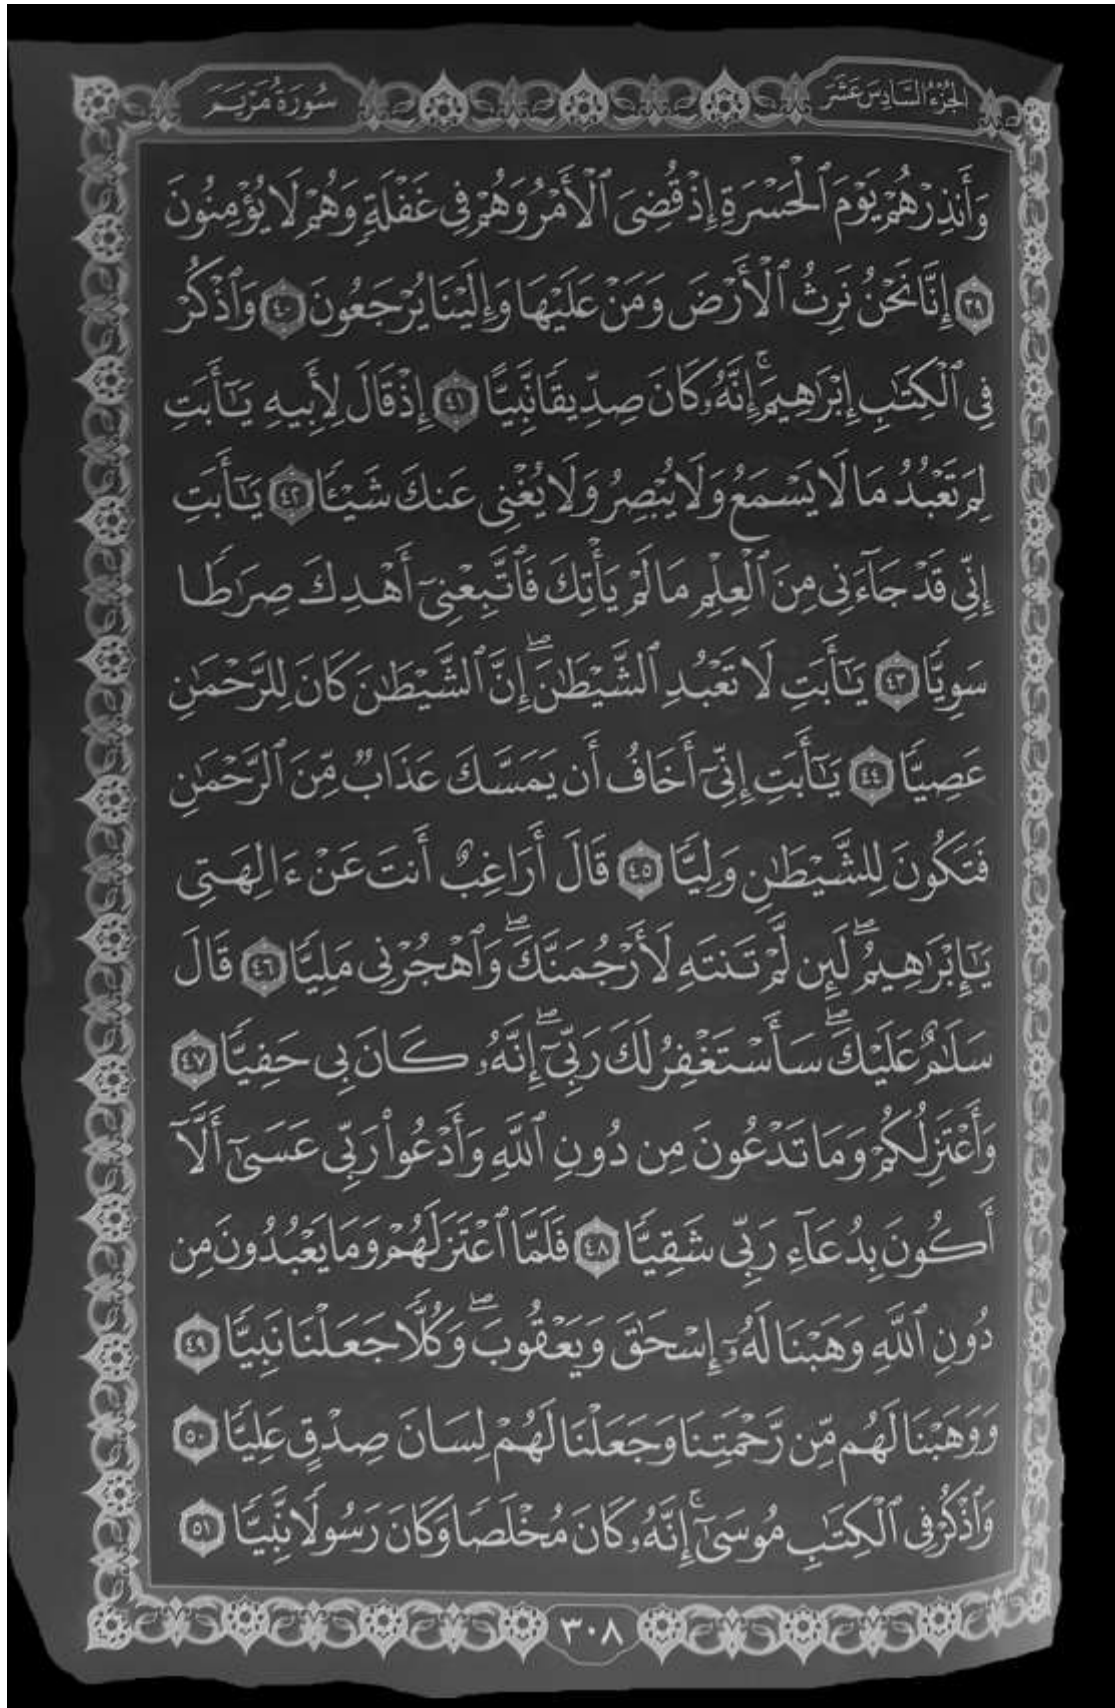 الجُزْءُ السَّادِسَ عَشَرَ
سُورَةُ مَرْيَمَ
وَأَنذِرْهُمْ يَوْمَ ٱلْحَسْرَةِ إِذْ قُضِىَ ٱلْأَمْرُ وَهُمْ فِى غَفْلَةٍۢ وَهُمْ لَا يُؤْمِنُونَ
٣٩ إِنَّا نَحْنُ نَرِثُ ٱلْأَرْضَ وَمَنْ عَلَيْهَا وَإِلَيْنَا يُرْجَعُونَ ٤٠ وَٱذْكُرْ
فِى ٱلْكِتَٰبِ إِبْرَٰهِيمَ ۚ إِنَّهُۥ كَانَ صِدِّيقًا نَّبِيًّا ٤١ إِذْ قَالَ لِأَبِيهِ يَٰٓأَبَتِ
لِمَ تَعْبُدُ مَا لَا يَسْمَعُ وَلَا يُبْصِرُ وَلَا يُغْنِى عَنكَ شَيْـًٔا ٤٢ يَٰٓأَبَتِ
إِنِّى قَدْ جَآءَنِى مِنَ ٱلْعِلْمِ مَا لَمْ يَأْتِكَ فَٱتَّبِعْنِىٓ أَهْدِكَ صِرَٰطًا
سَوِيًّا ٤٣ يَٰٓأَبَتِ لَا تَعْبُدِ ٱلشَّيْطَٰنَ ۖ إِنَّ ٱلشَّيْطَٰنَ كَانَ لِلرَّحْمَٰنِ
عَصِيًّا ٤٤ يَٰٓأَبَتِ إِنِّىٓ أَخَافُ أَن يَمَسَّكَ عَذَابٌ مِّنَ ٱلرَّحْمَٰنِ
فَتَكُونَ لِلشَّيْطَٰنِ وَلِيًّا ٤٥ قَالَ أَرَاغِبٌ أَنتَ عَنْ ءَالِهَتِى
يَٰٓإِبْرَٰهِيمُ ۖ لَئِن لَّمْ تَنتَهِ لَأَرْجُمَنَّكَ ۖ وَٱهْجُرْنِى مَلِيًّا ٤٦ قَالَ
سَلَٰمٌ عَلَيْكَ ۖ سَأَسْتَغْفِرُ لَكَ رَبِّىٓ ۖ إِنَّهُۥ كَانَ بِى حَفِيًّا ٤٧
وَأَعْتَزِلُكُمْ وَمَا تَدْعُونَ مِن دُونِ ٱللَّهِ وَأَدْعُوا۟ رَبِّى عَسَىٰٓ أَلَّآ
أَكُونَ بِدُعَآءِ رَبِّى شَقِيًّا ٤٨ فَلَمَّا ٱعْتَزَلَهُمْ وَمَا يَعْبُدُونَ مِن
دُونِ ٱللَّهِ وَهَبْنَا لَهُۥٓ إِسْحَٰقَ وَيَعْقُوبَ ۖ وَكُلًّا جَعَلْنَا نَبِيًّا ٤٩
وَوَهَبْنَا لَهُم مِّن رَّحْمَتِنَا وَجَعَلْنَا لَهُمْ لِسَانَ صِدْقٍ عَلِيًّا ٥٠
وَٱذْكُرْ فِى ٱلْكِتَٰبِ مُوسَىٰٓ ۚ إِنَّهُۥ كَانَ مُخْلَصًا وَكَانَ رَسُولًا نَّبِيًّا ٥١
٣٠٨